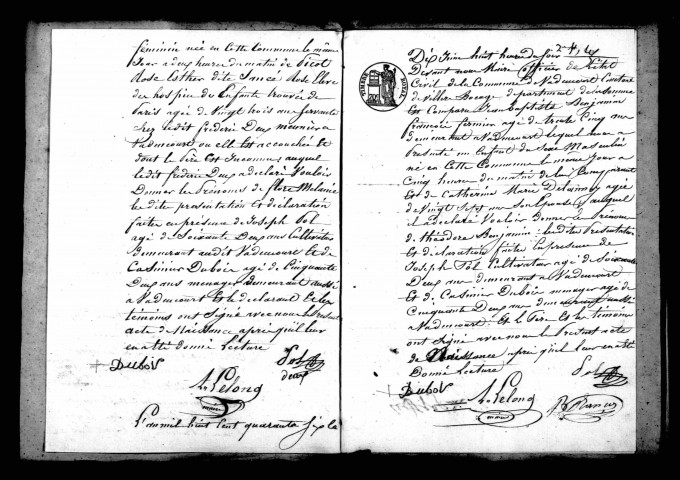 féminin née en cette commune le même
jour a deux heures du matin de Picot
Rose Esther dite Sancé Rose Eleve
des hospice des Enfants trouvés de
Paris agé de vingt trois ans servante
chez ledit frédéric Deux meunier a
Vadencourt ou elle est accouchée et
dont le Père est Inconnu auquel
ledit frédéric Deux a déclaré Vouloir
Donner les Prénoms de flore Melanie
Les dite présentation et déclaration
faites en présence de Joseph Tol
agé de Soixante Deux ans Cultivateur
Demeurant audit Vadencourt Et de
Casimir Dubois agé de Cinquante
Deux ans menager Demeurant aussi
a Vadencourt Et le declarant Et les
témoins ont Signé avec nous le présent
acte de Naissance après qu'il leur
en a été Donné Lecture
Dubois Tol
deux
Lelong
maire
L'an mil huit Cent quarante Six le
Dix Juin huit heures du
Devant nous Maire Officier de l'état
Civil de la Commune de Vadencourt Canton
de Villers Bocage département de la Somme
Est Comparu Jean Baptiste Benjamin
françois fermier agé de trente Cinq ans
demeurant a Vadencourt lequel nous a
Présenté un Enfant du Sexe Masculin
né en Cette Commune le même Jour a
Cinq heures du matin de lui
Et de Catherine Marie
de Vingt Sept ans Son Epouse Et auquel
il a déclaré Vouloir Donner les Prénoms
de théodore Benjamin les dites Présentation
Et déclaration faites En présence de
Joseph Tol Cultivateur agé de Soixante
Deux ans demeurant a Vadencourt
Et de Casimir Dubois menager agé de
Cinquante Deux ans demeurant aussi
a Vadencourt Et le Père Et les témoins
ont Signé avec nous le présent acte
de Naissance après qu'il leur en a été
Donné Lecture
Dubois Tol
Lelong
maire